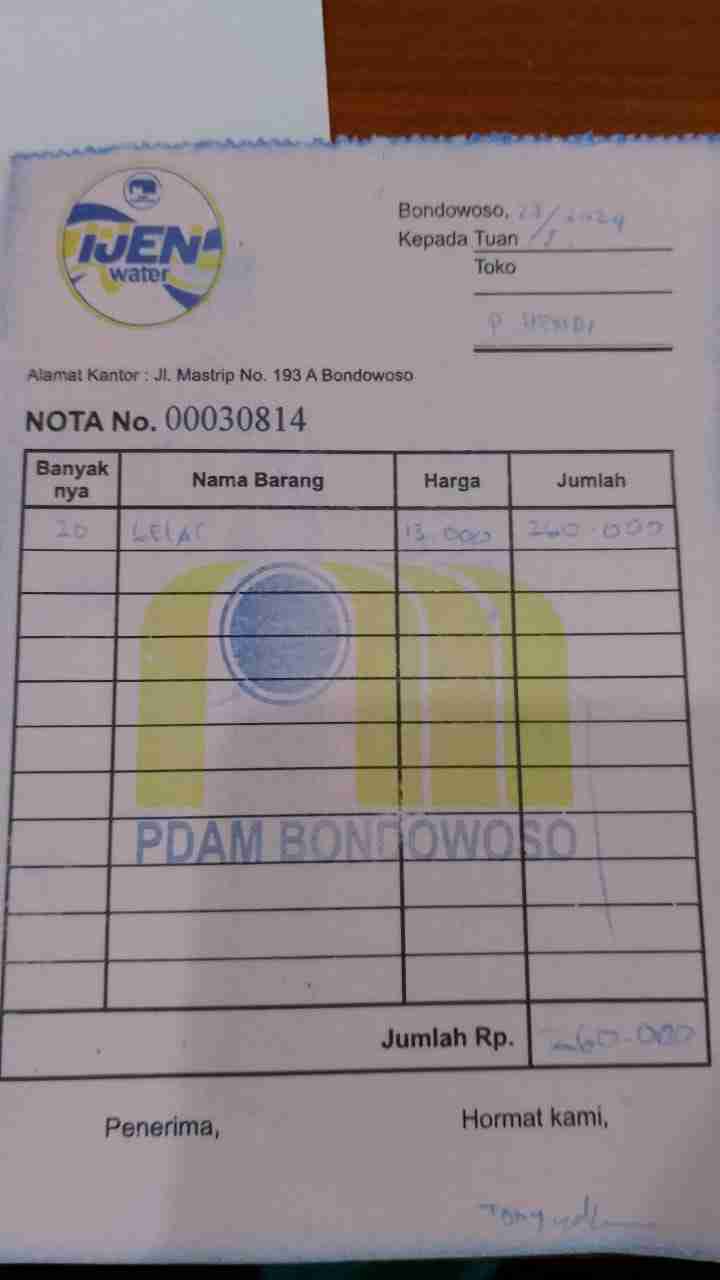 IJEN
water
Bondowoso, 23/5 2024
Kepada Tuan
Toko
P HENDI
Alamat Kantor : Jl. Mastrip No. 193 A Bondowoso
NOTA No. 00030814
Banyak nya Nama Barang Harga Jumlah
20 13.000 260.000
PDAM BONDOWOSO
Jumlah Rp. 260.000
Penerima, Hormat kami,